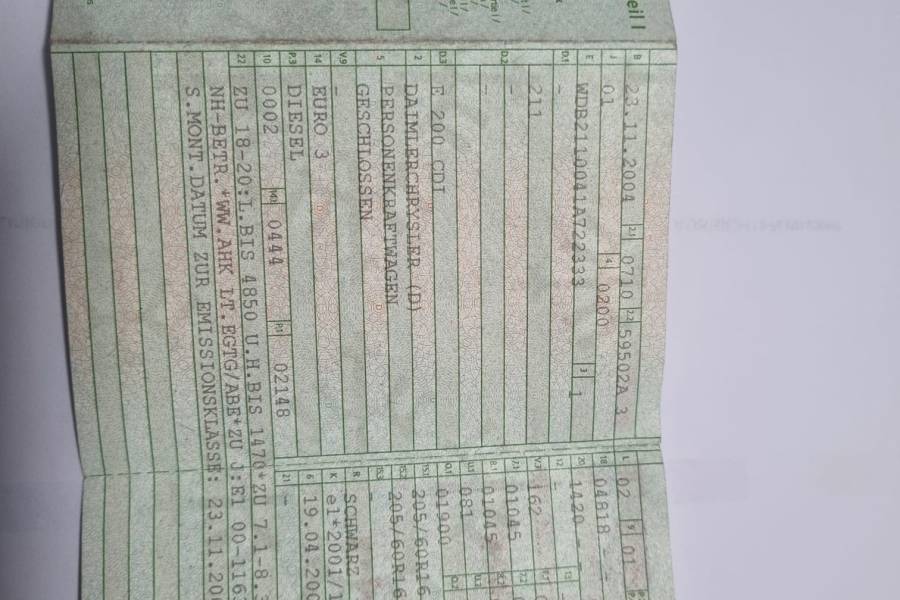 eil I
B 23.11.2004 2.1 0710 2.2 59502A 3
J 01 4 0200
E WDB2110041A722333 3 1
D.1 -
211
D.2 -
-
D.3 E 200 CDI
2 DAIMLERCHRYSLER (D)
5 PERSONENKRAFTWAGEN
GESCHLOSSEN
V.9 -
14 EURO 3
P.3 DIESEL
10 0002 14.1 0444 P.1 02148
22 ZU 18-20:L.BIS 4850 U.H.BIS 1470*ZU 7.1-8.3
NH-BETR.*WW.AHK LT.EGTG/ABE*ZU J:E1 00-116
S.MONT.DATUM ZUR EMISSIONSKLASSE: 23.11.200
L 02 9 01
18 04818 -
20 1420 -
12 -
V.7 162
7.1 01045
8.1 01045
U.1 081
O.1 01900
15.1 205/60R16
15.2 205/60R16
15.3 -
R SCHWARZ
K e1*2001/1
6 19.04.200
21 -